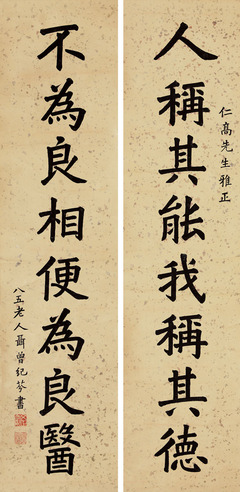 仁高先生雅正
人稱其能我稱其德
不為良相便為良醫
八五老人聶曾紀芬書